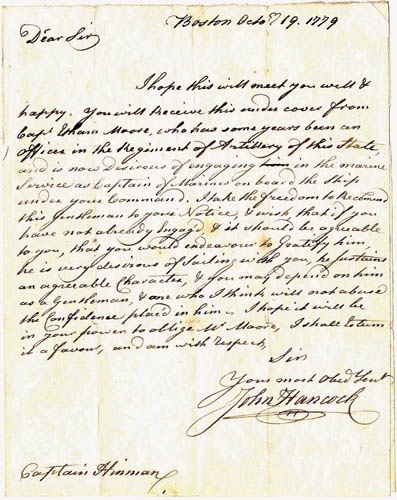 Boston Octor. 19. 1779
Dear Sir
I hope this will meet you well &
happy. You will Receive this under cover from
Capt. Moore, who has some years been an
Officer in the Regiment of Artillery of this State
and is now Desirous of engaging in the marine
Service as Captain of Marines on board the Ship
under your Command. I take the freedom to Recommend
this Gentleman to your Notice, & wish that if you
have not already Engag'd & it should be agreeable
to you, that you would endeavour to gratify him
he is very desirous of Sailing with you, he sustains
an agreeable Character, & you may depend on him
as a Gentleman, & one who I think will not abuse
the Confidence placed in him. I hope it will be
in your power to oblige Mr. Moore, I shall Esteem
it a favour, and am with Respect,
Sir
Your most Obed Servt
John Hancock
Captain Hinman